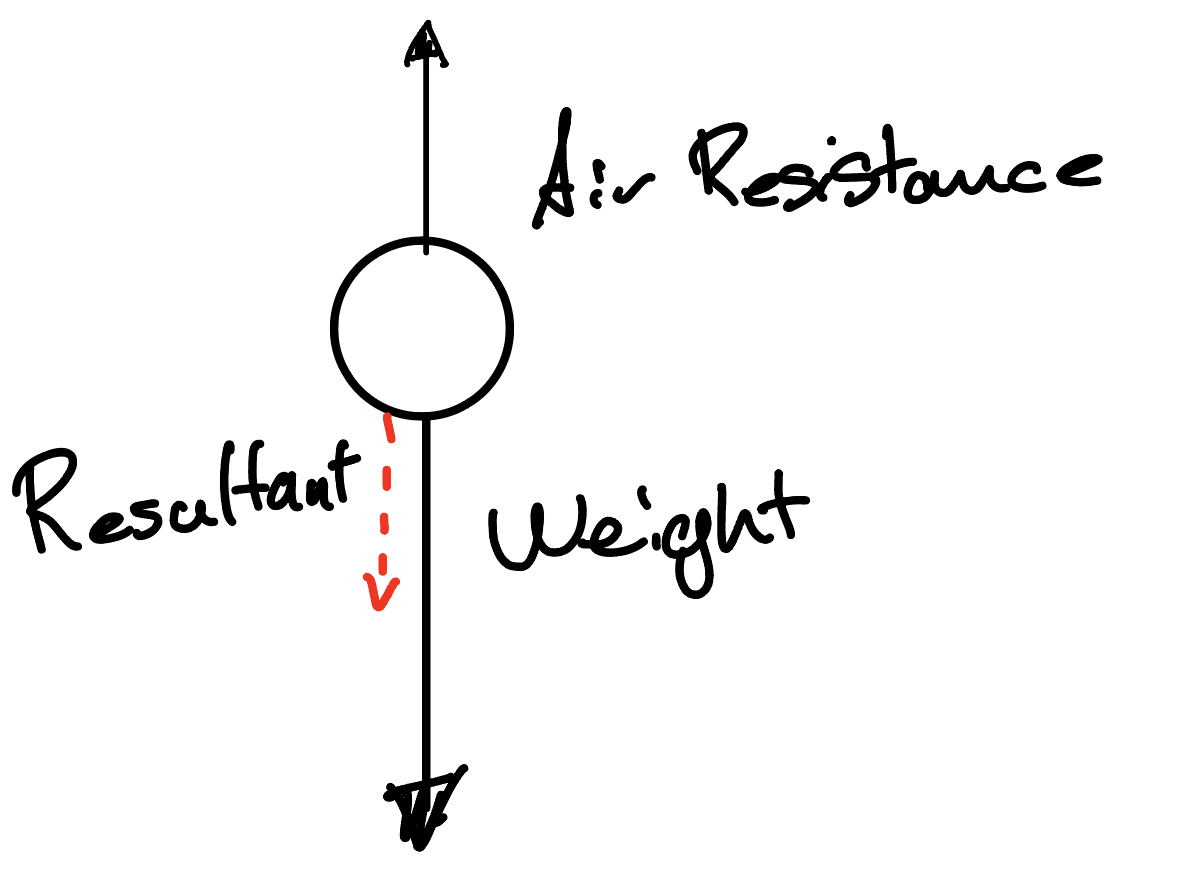 Air Resistance
Resultant
Weight